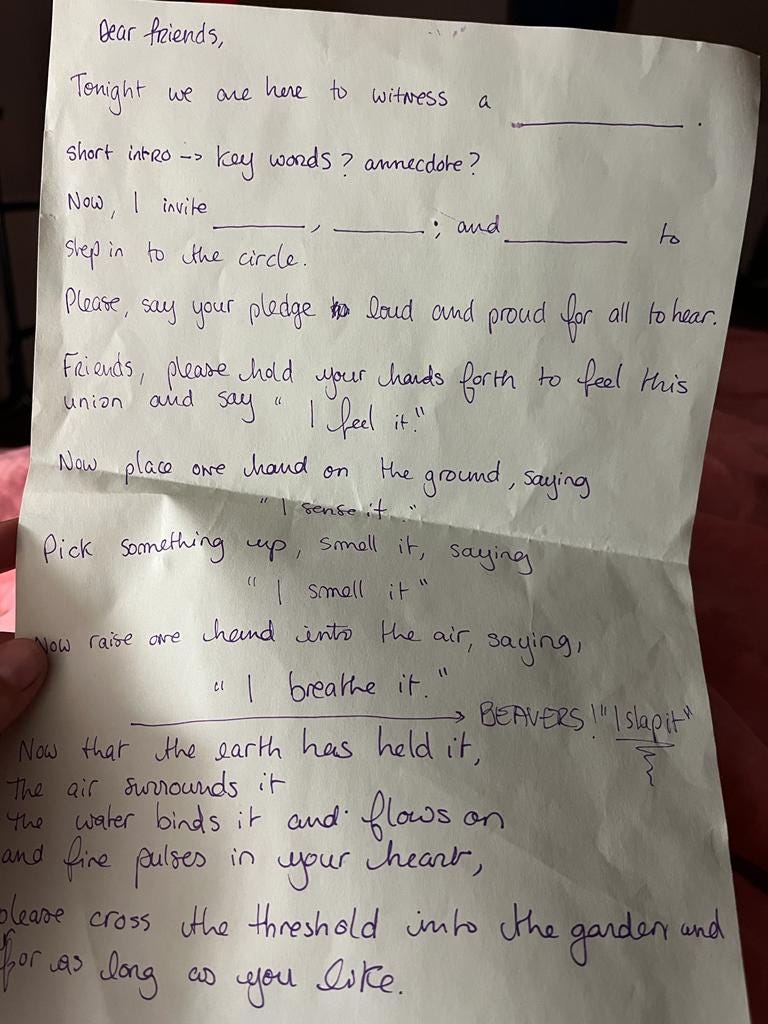 Dear friends,
Tonight we are here to witness a ________ .
short intro -> key words? annecdote?
Now, I invite ________, ________; and ________ to
step in to the circle.
Please, say your pledge loud and proud for all to hear.
Friends, please hold your hands forth to feel this
union and say " I feel it."
Now place one hand on the ground, saying
" I sense it ."
Pick something up, smell it, saying
" I smell it "
Now raise one hand into the air, saying,
" I breathe it."
BEAVERS! "I slap it"
Now that the earth has held it,
The air surrounds it
the water binds it and flows on
and fire pulses in your heart,
please cross the threshold into the garden and
for as long as you like.